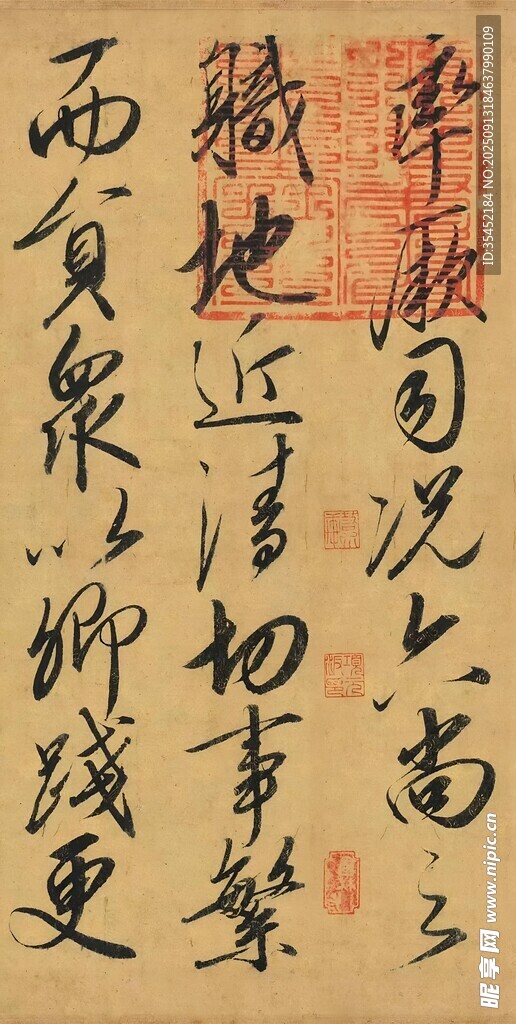 率厥司況六尚之
職地近清切事繁
而貟衆以卿踐更
項元汴印
ID:35452184 NO:20250913184637990109
昵享网 www.nipic.cn